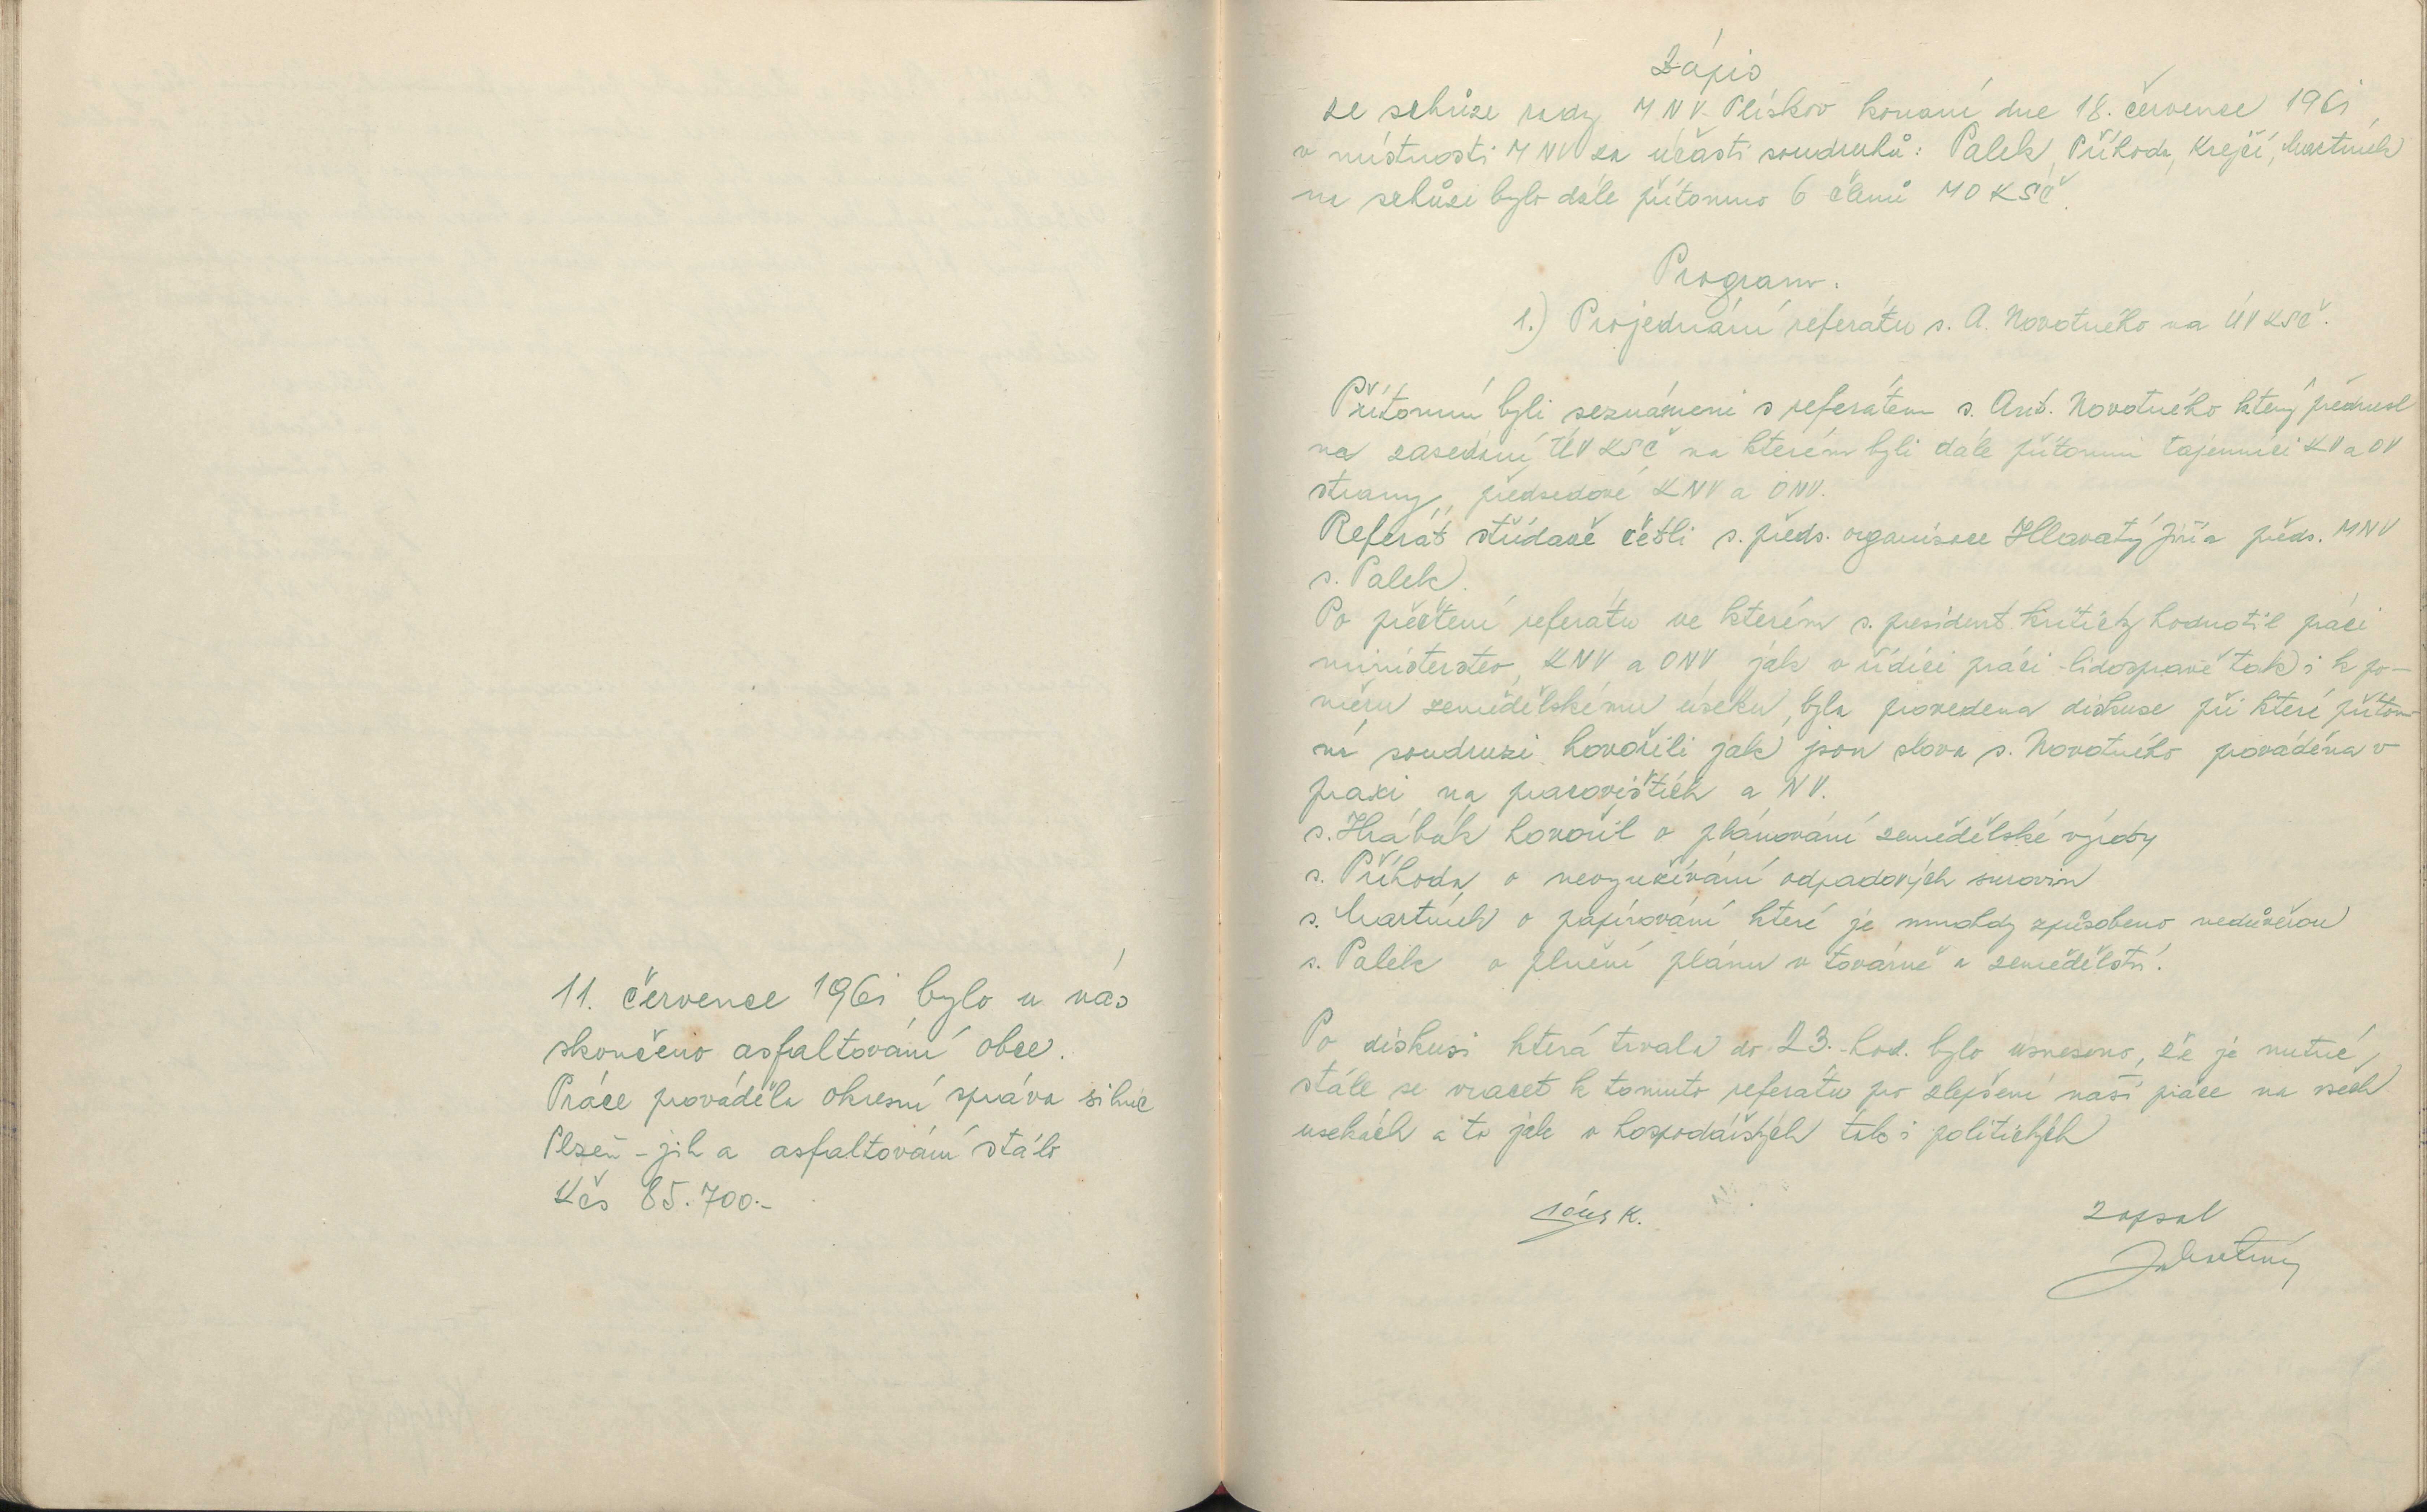 11. července 1961 bylo u nás
skončeno asfaltování obce.
Práce prováděla okresní správa silnic
Plzeň - jih a asfaltování stálo
Kčs 85.700.-
Zápis
ze schůze rady MNV Plískov konaní dne 18. července 1961,
v místnosti MNV za účasti soudruhů: Palek, Příhoda, Krejčí, Martínek
na schůzi bylo dále přítomno 6 členů MO KSČ.
Program.
1.) Projednání referátu s. A. Novotného na ÚV KSČ.
Přítomní byli seznámeni s referátem s. Ant. Novotného který přednesl
na zasedání ÚV KSČ na kterém byli dále přítomni tajemníci KV a OV
strany, předsedové KNV a ONV.
Referát střídavě četli s. předs. organisace Hlavatý Jiří a předs. MNV
s. Palek.
Po přečtení referátu ve kterém s. president kriticky hodnotil práci
ministerstev, KNV a ONV jak v řídící práci - lidosprávě tak i k po-
měru zemědělskému úseku, byla provedena diskuse při které přítom-
ní soudruzi hovořili jak jsou slova s. Novotného prováděna v
praxi na pracovištích a NV.
s. Hrábák hovořil o plánování zemědělské výroby
s. Příhoda o nevyužívání odpadových surovin
s. Martínek o papírování které je mnohdy způsobeno nedůvěrou
s. Palek o plnění plánu v továrně a zemědělství.
Po diskusi která trvala do 23. hod. bylo usneseno, že je nutné
stále se vracet k tomuto referátu pro zlepšení naší práce na všech
usekách a to jak v hospodářských tak i politických
K.
Zapsal